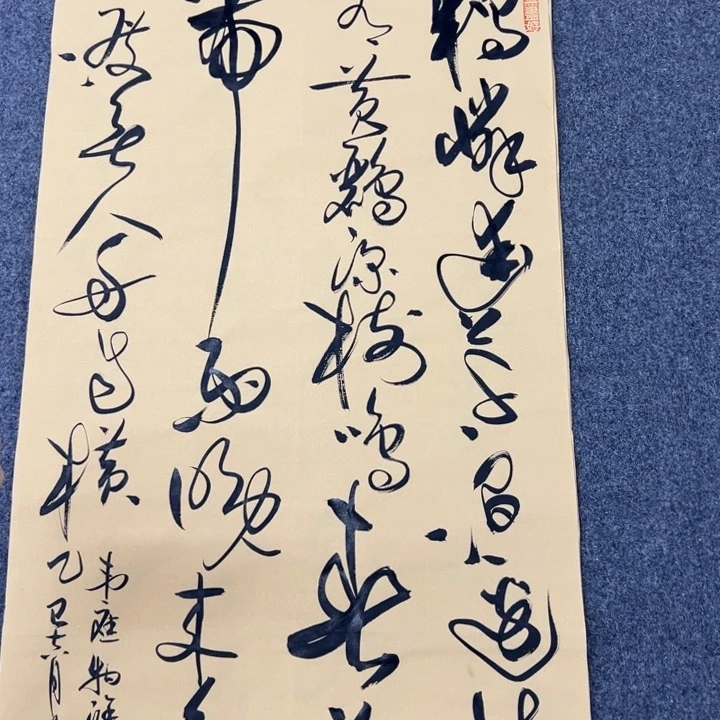 獨憐幽草澗邊生
有黄鸝深樹鳴春
帶雨晚来
渡無人舟自橫
韦應物滁
乙巳六月